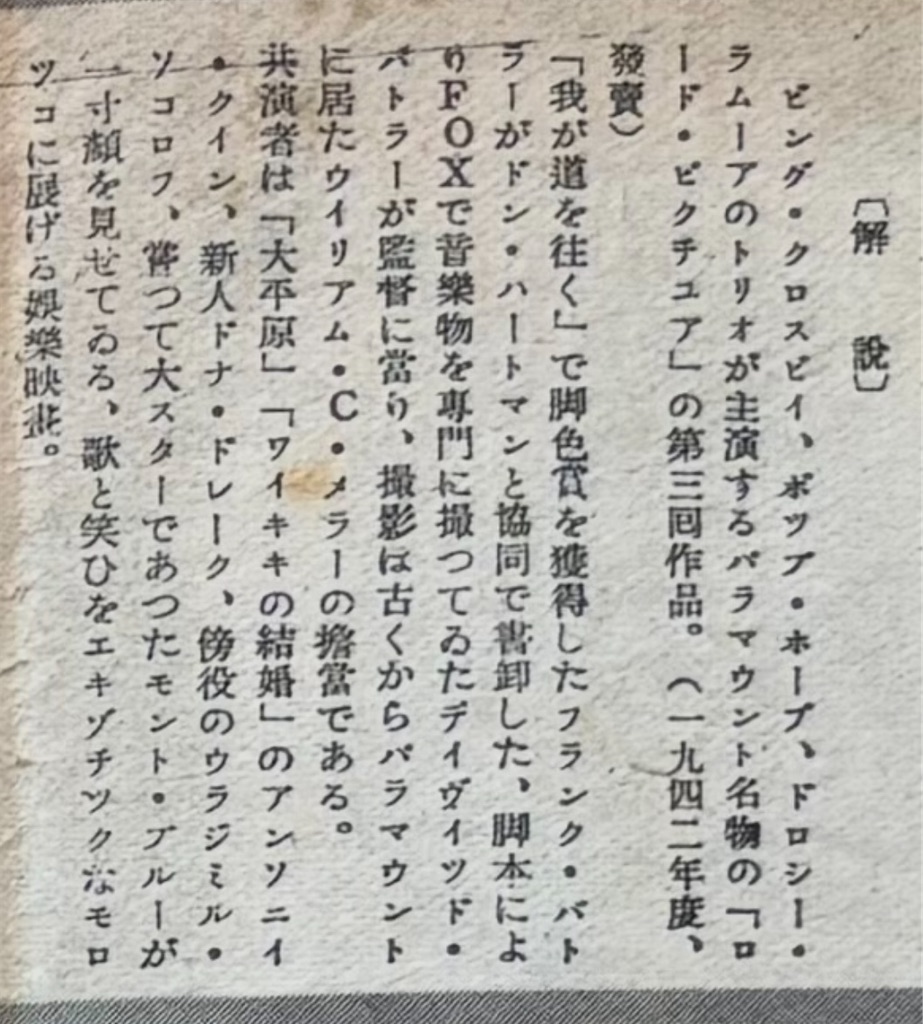 〔解　說〕
ビング・クロスビイ、ボツブ・ホープ、ドロシー・
ラムーアのトリオが主演するパラマウント名物の「ロ
ード・ピクチユア」の第三囘作品。（一九四二年度、
發賣）
「我が道を往く」で脚色賞を獲得したフランク・バト
ラーがドン・ハートマンと協同で書卸した、脚本によ
りＦＯＸで音樂物を專門に撮つてゐたデイヴイツド・
バトラーが監督に當り、撮影は古くからパラマウント
に居たウイリアム・Ｃ・メラーの擔當である。
共演者は「大平原」「ワイキキの結婚」のアンソニイ
・クイン、新人ドナ・ドレーク、傍役のウラジミル・
ソコロフ、嘗つて大スターであつたモント・ブルーが
一寸顏を見せてゐる、歌と笑ひをエキゾチツクなモロ
ツコに展げる娛樂映畫。